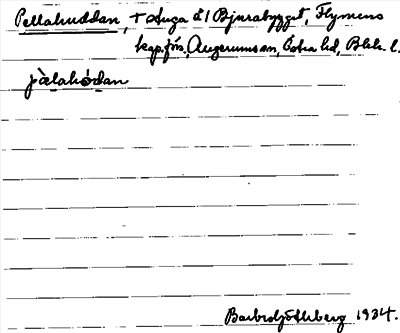 Pellahuddan, + stuga å / Bjurabygget, Flymens
kap.förs., Augerumsån, Östra hd, Blek. l.
pàlahódan
Barbro Söderberg 1934.